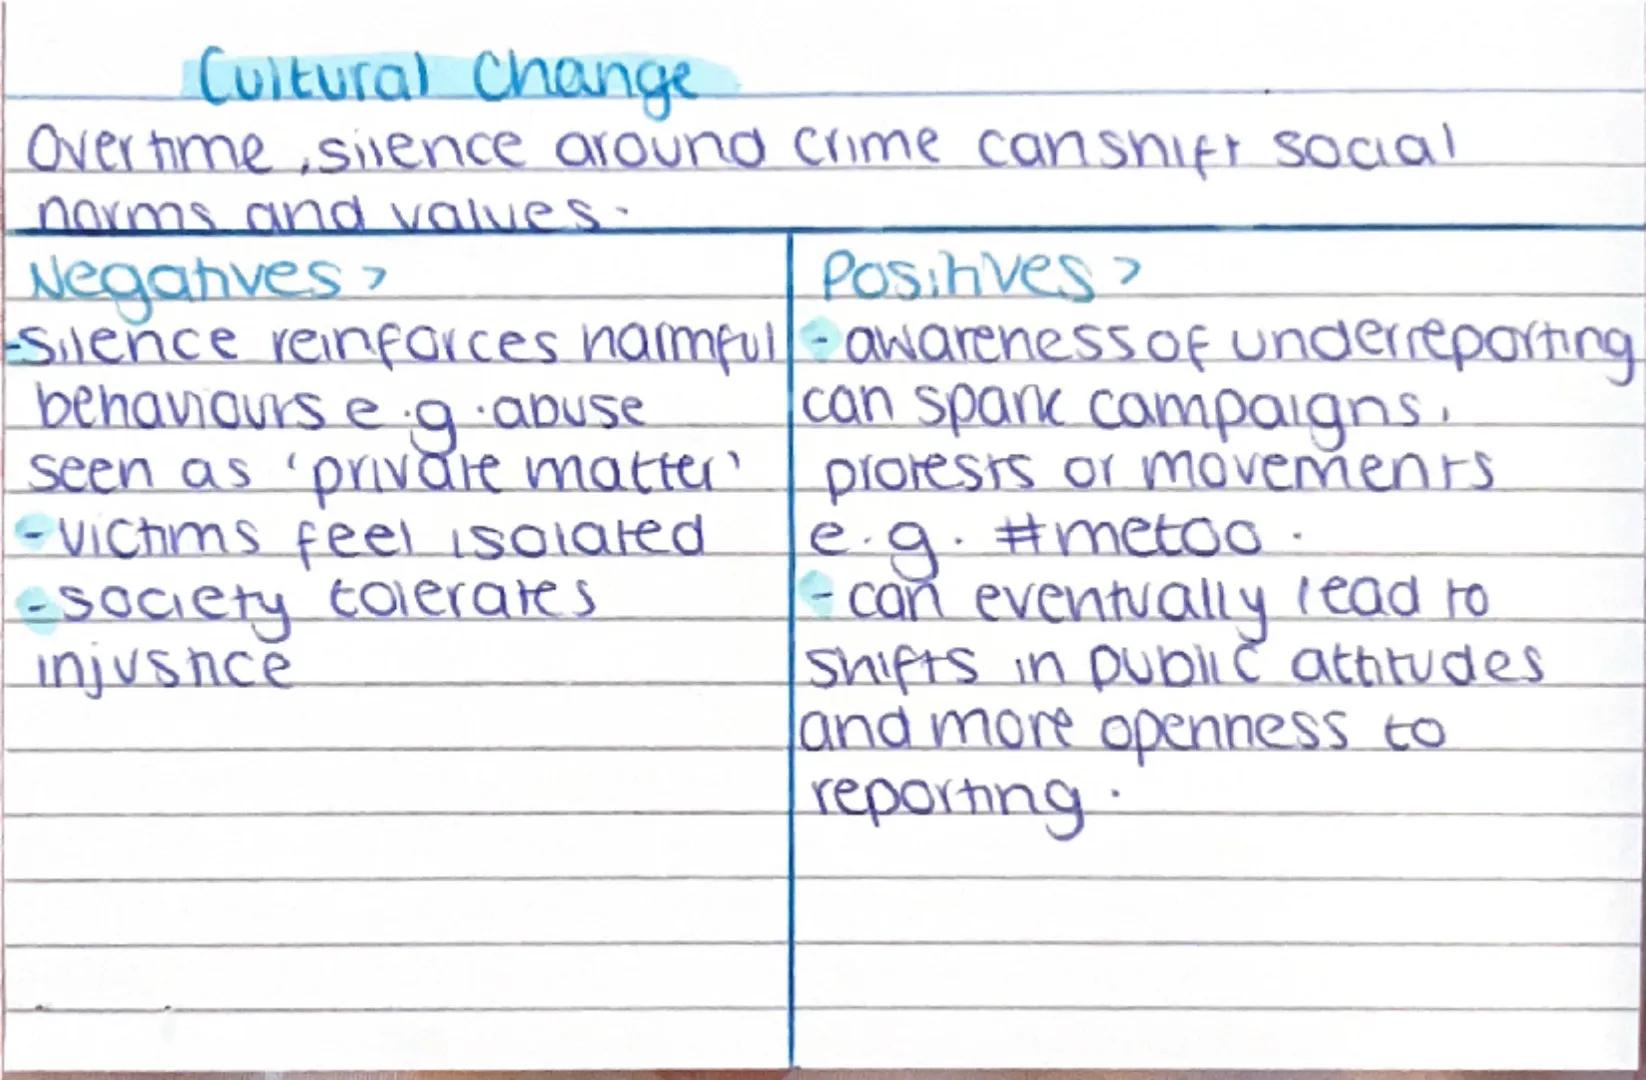 Cultural Change
Over time, silence around crime can shift social
norms and values.
Negatives >
-silence reinforces harmful
behaviours e.g. abuse
seen as 'private matter'
-victims feel isolated
-society tolerates
injustice
Positives >
-awareness of underreporting
can spark campaigns,
protests or movements
e.g. #metoo.
-can eventually lead to
shifts in public attitudes
and more openness to
reporting.